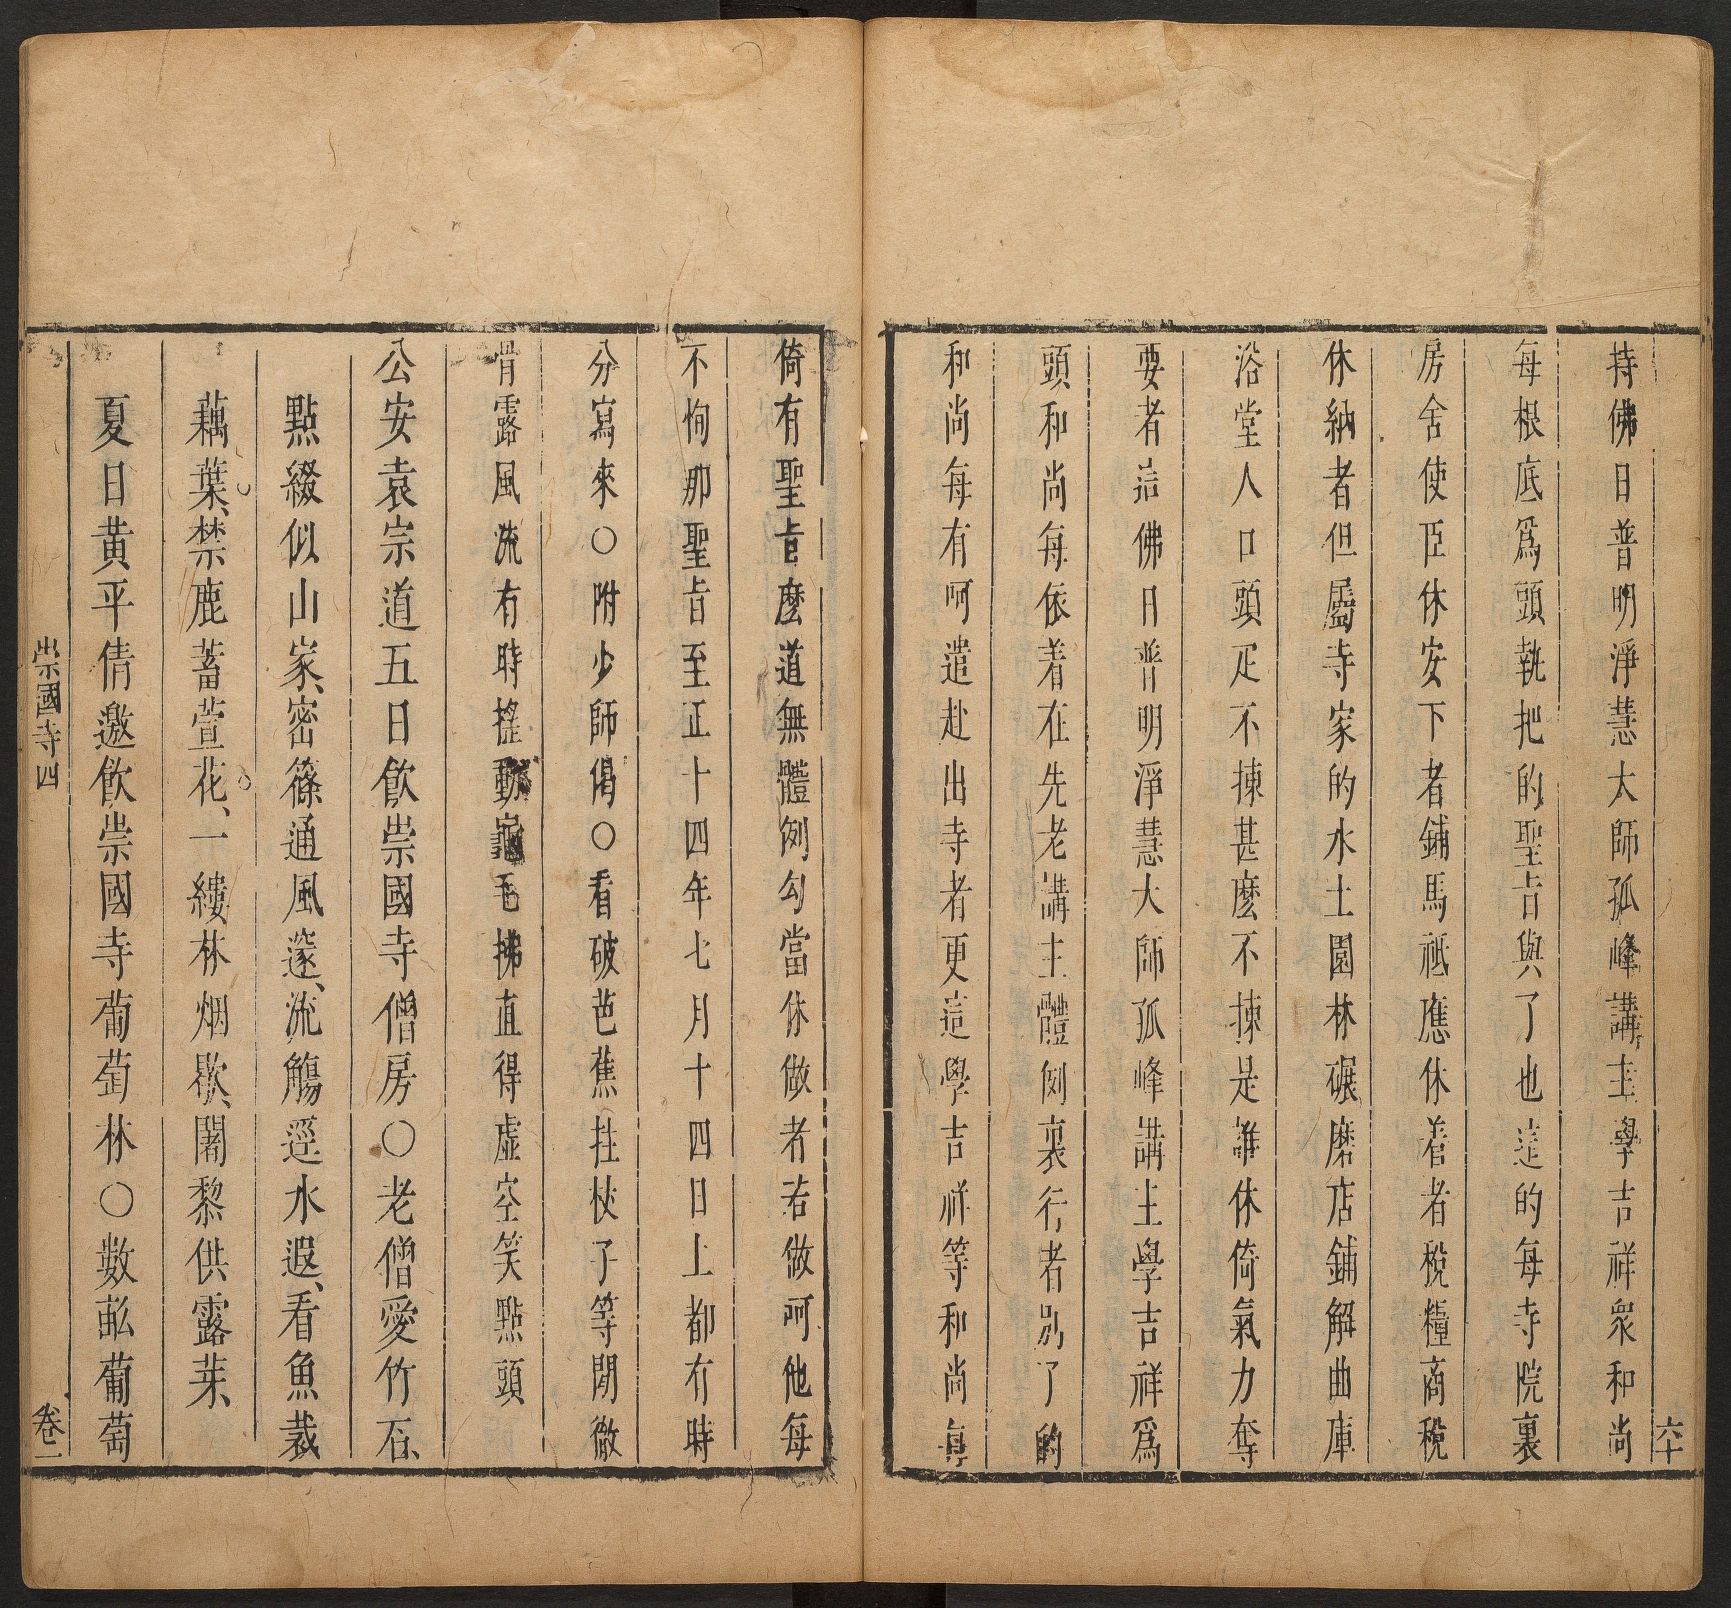 六十
持佛日普明淨慧大師孤峰講主學吉祥衆和尚
每根底爲頭執把的聖旨與了也這的每寺院裏
房舍使臣休安下者鋪馬祗應休着者稅糧商稅
休納者但屬寺家的水土園林碾磨店鋪解曲庫
浴堂人口頭疋不揀甚麼不揀是誰休倚氣力奪
要者這佛日普明淨慧大師孤峰講主學吉祥爲
頭和尚每依着在先老講主體例裏行者別了的
和尚每有呵遣赴出寺者更這學吉祥等和尚每
倚有聖旨麼道無體例勾當休做者若做呵他每
不恂那聖旨至正十四年七月十四日上都有時
分寫來○附少師偈○看破芭蕉拄杖子等閒徹
骨露風流有時搖動龜毛拂直得虛空笑點頭
公安袁宗道五日飮崇國寺僧房○老僧愛竹石、
點綴似山家、密篠通風邃、流觴逕水遐、看魚裁
藕葉、禁鹿蓄萱花、一縷林烟歇、闍黎供露芽、
夏日黃平倩邀飮崇國寺葡萄林○數畝葡萄
崇國寺四
卷一